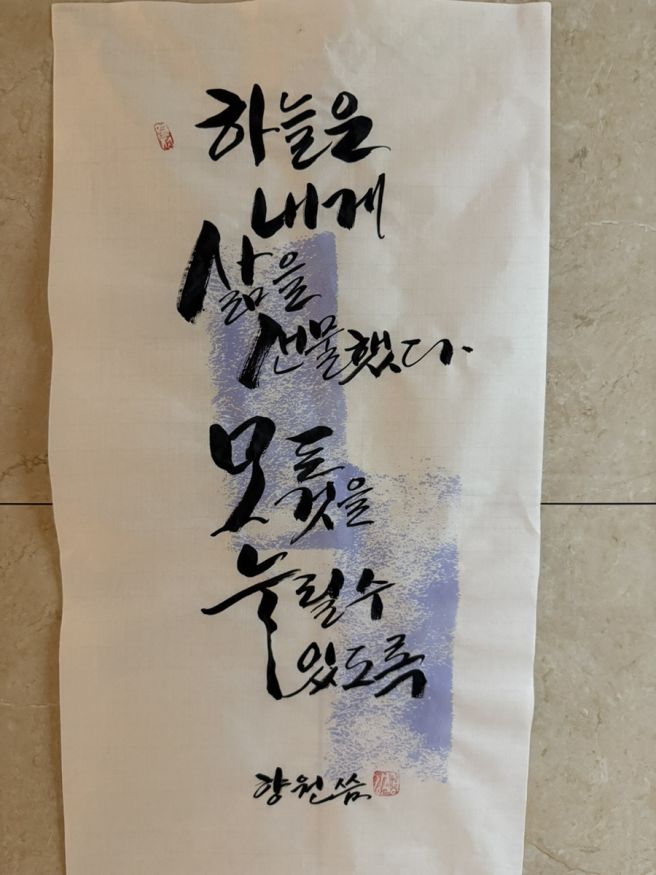 하늘은
내게
삶을
선물했다.
모든것을
누릴수
있도록
향원 씀